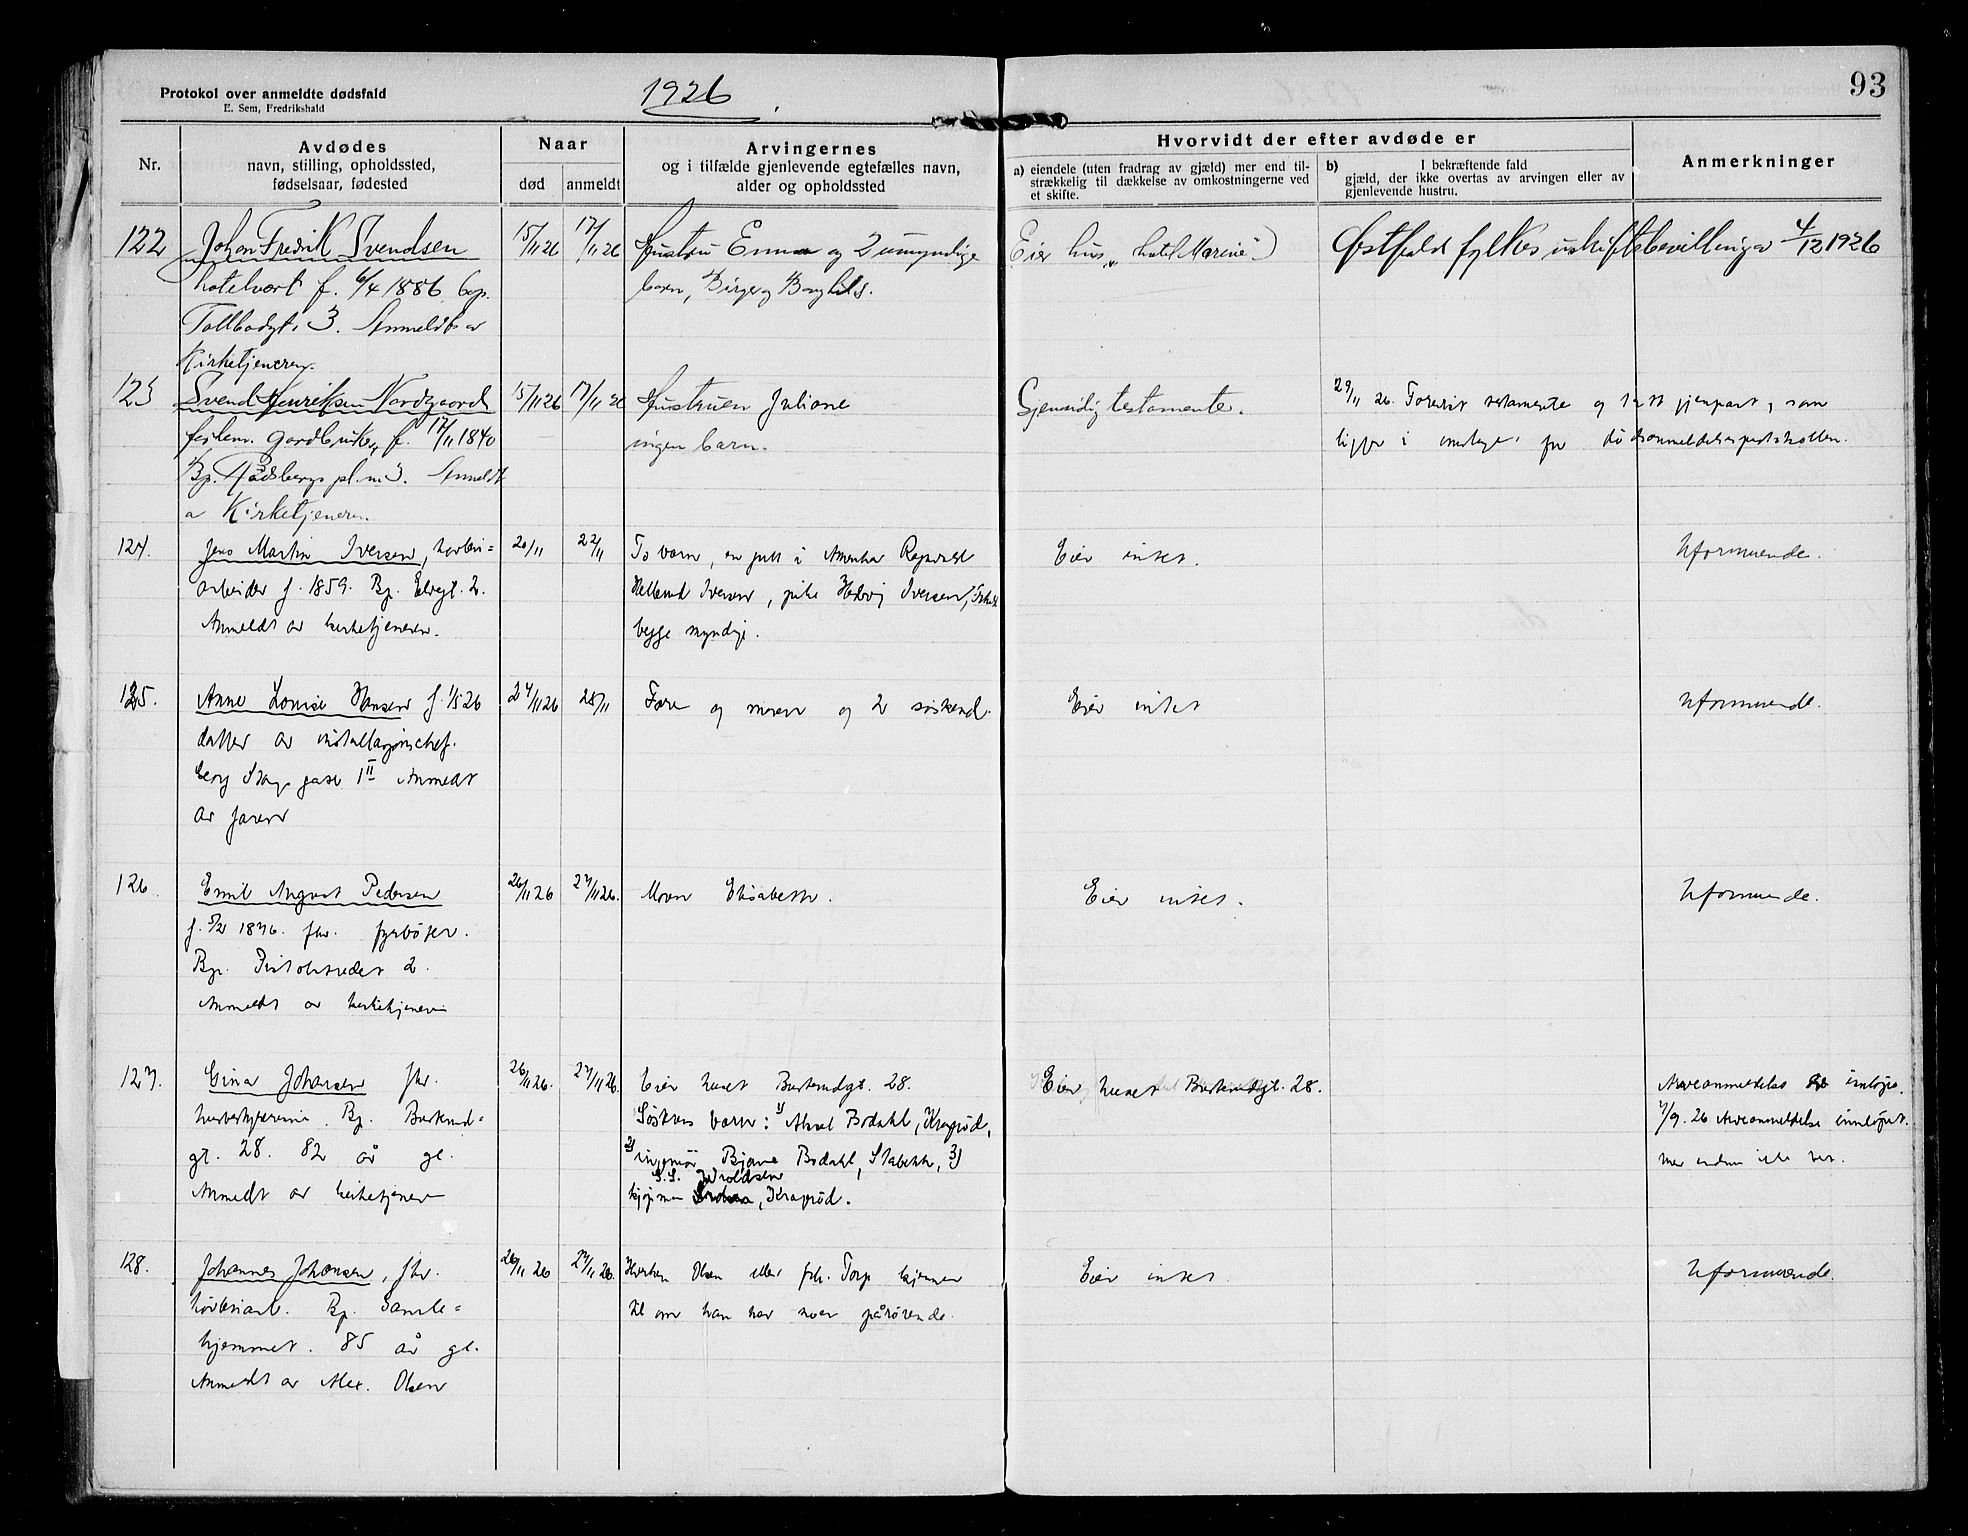 Protokol over anmeldte dødsfald
E. Sem, Fredrikshald
1926
93
Nr.
Avdødes
navn, stilling, opholdssted,
fødselsaar, fødested
Naar
død
anmeldt
Arvingernes
og i tilfælde gjenlevende egtefælles navn,
alder og opholdssted
Hvorvidt der efter avdøde er
a) eiendele (uten fradrag av gjæld) mer end til-
strækkelig til dækkelse av omkostningerne ved
et skifte.
b) I bekræftende fald
gjæld, der ikke overtas av arvingen eller av
gjenlevende hustru.
Anmerkninger
122
Johan Fredrik Svendsen
hotelvert f. 6/4 1886 bop.
Tollbodgt. 3. Anmeldt av
Kirketjeneren.
15/11 26
17/11 26
Hustru Emma og 2 umyndige
barn, Birger og
Eier hus "Hotel Marine"
Østfold fylkes uskiftebevilling av 4/12 1926
123
Svend Henriksen Nordgaard
gardbruker, f. 17/11 1840
Bp. Rødsbergs pl. nr 3. Anmeldt
av Kirketjeneren.
15/11 26
17/11 26
Hustruen Juliane
ingen barn.
Gjensidig testamente.
29/11 26. Forevist testamente og tatt gjenpart, som
ligger i omslaget for dødsanmeldelsesprotokollen.
124.
Jens Martin Iversen, havne-
arbeider f. 1859. Bp. Elvegt. 2.
Anmeldt av kirketjeneren.
20/11
22/11
To barn, en gutt i Amerika
Iversen, pike Hedvig Iversen,
begge myndige.
Eier intet.
Uformuende.
125.
Anne Louise Hansen f. 1/5 26
datter av
gate 1 II Anmeldt
av faren
24/11 26
25/11
Fare og moren og 2 søskend.
Eier intet
Uformuende.
126.
Emil August Pedersen
f. 5/2 1876. fhv. fyrbøter.
Bp. Pistolstredet 2.
Anmeldt av kirketjeneren
26/11 26
27/11 26.
Moren Elisabeth.
Eier intet.
Uformuende.
127.
Gina Johansen fhv.
Bp. Buskerud-
gt. 28. 82 år gl.
Anmeldt av kirketjener
26/11 26.
27/11 26.
Eier huset Buskerudgt. 28.
Søskens barn: 1) Aksel Bodahl, Kragerød,
2) ingeniør Bjarne Bodahl, Stabekk, 3)
S. S. Wroldsen
kjøpmann, Kragerød.
Eier huset Buskerudgt. 28.
Arveanmeldelse innløpt.
7/9. 26 Arveanmeldelse innløpet.
mer enda ikke
128.
Johannes Johansen, fhv.
havnearb. Bp. Gamle-
hjemmet. 85 år gl.
Anmeldt av Alex. Olsen
26/11 26
27/11 26.
Hverken Olsen eller frk. Torp kjenner
til om han har noen pårørende.
Eier intet.
Uformuende.